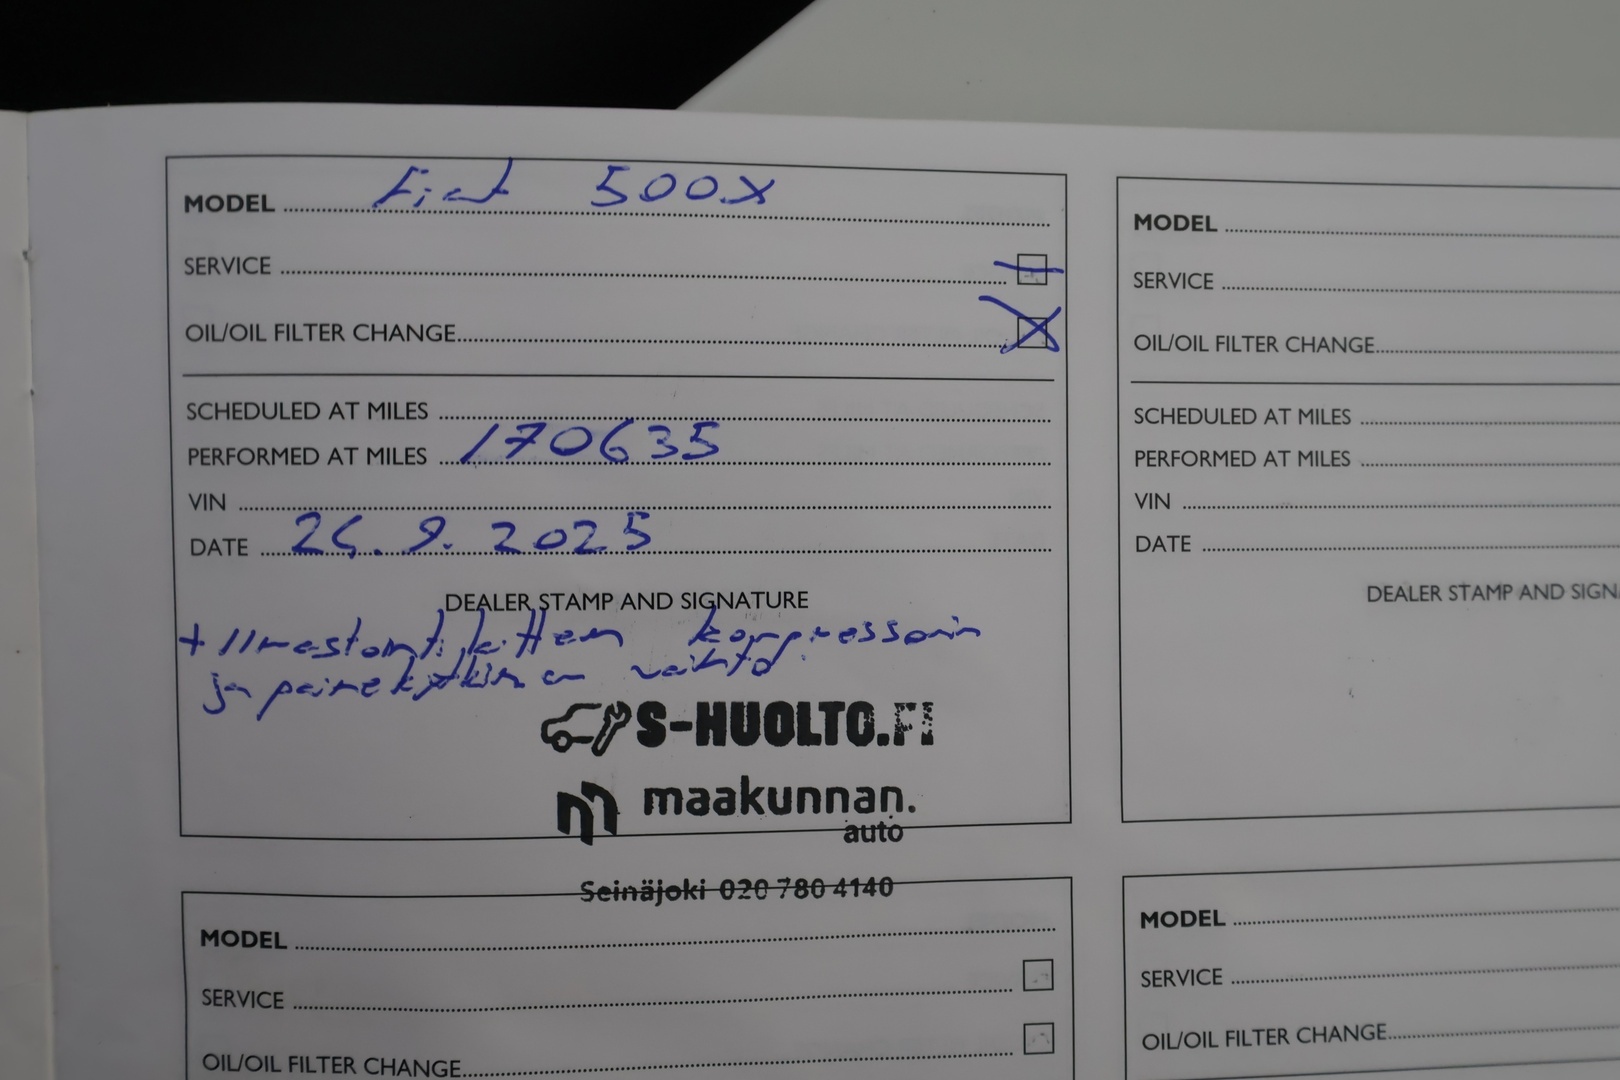 MODEL Fiat 500X
SERVICE
OIL/OIL FILTER CHANGE X
SCHEDULED AT MILES
PERFORMED AT MILES 170635
VIN
DATE 26.9.2025
DEALER STAMP AND SIGNATURE
+ Ilmastointilaitteen kompressorin
ja painekytkimen vaihto
S-HUOLTO.FI
maakunnan.
auto
Seinäjoki 020 780 4140
MODEL
SERVICE
OIL/OIL FILTER CHANGE
SCHEDULED AT MILES
PERFORMED AT MILES
VIN
DATE
DEALER STAMP AND SIGN
MODEL
SERVICE
OIL/OIL FILTER CHANGE
MODEL
SERVICE
OIL/OIL FILTER CHANGE